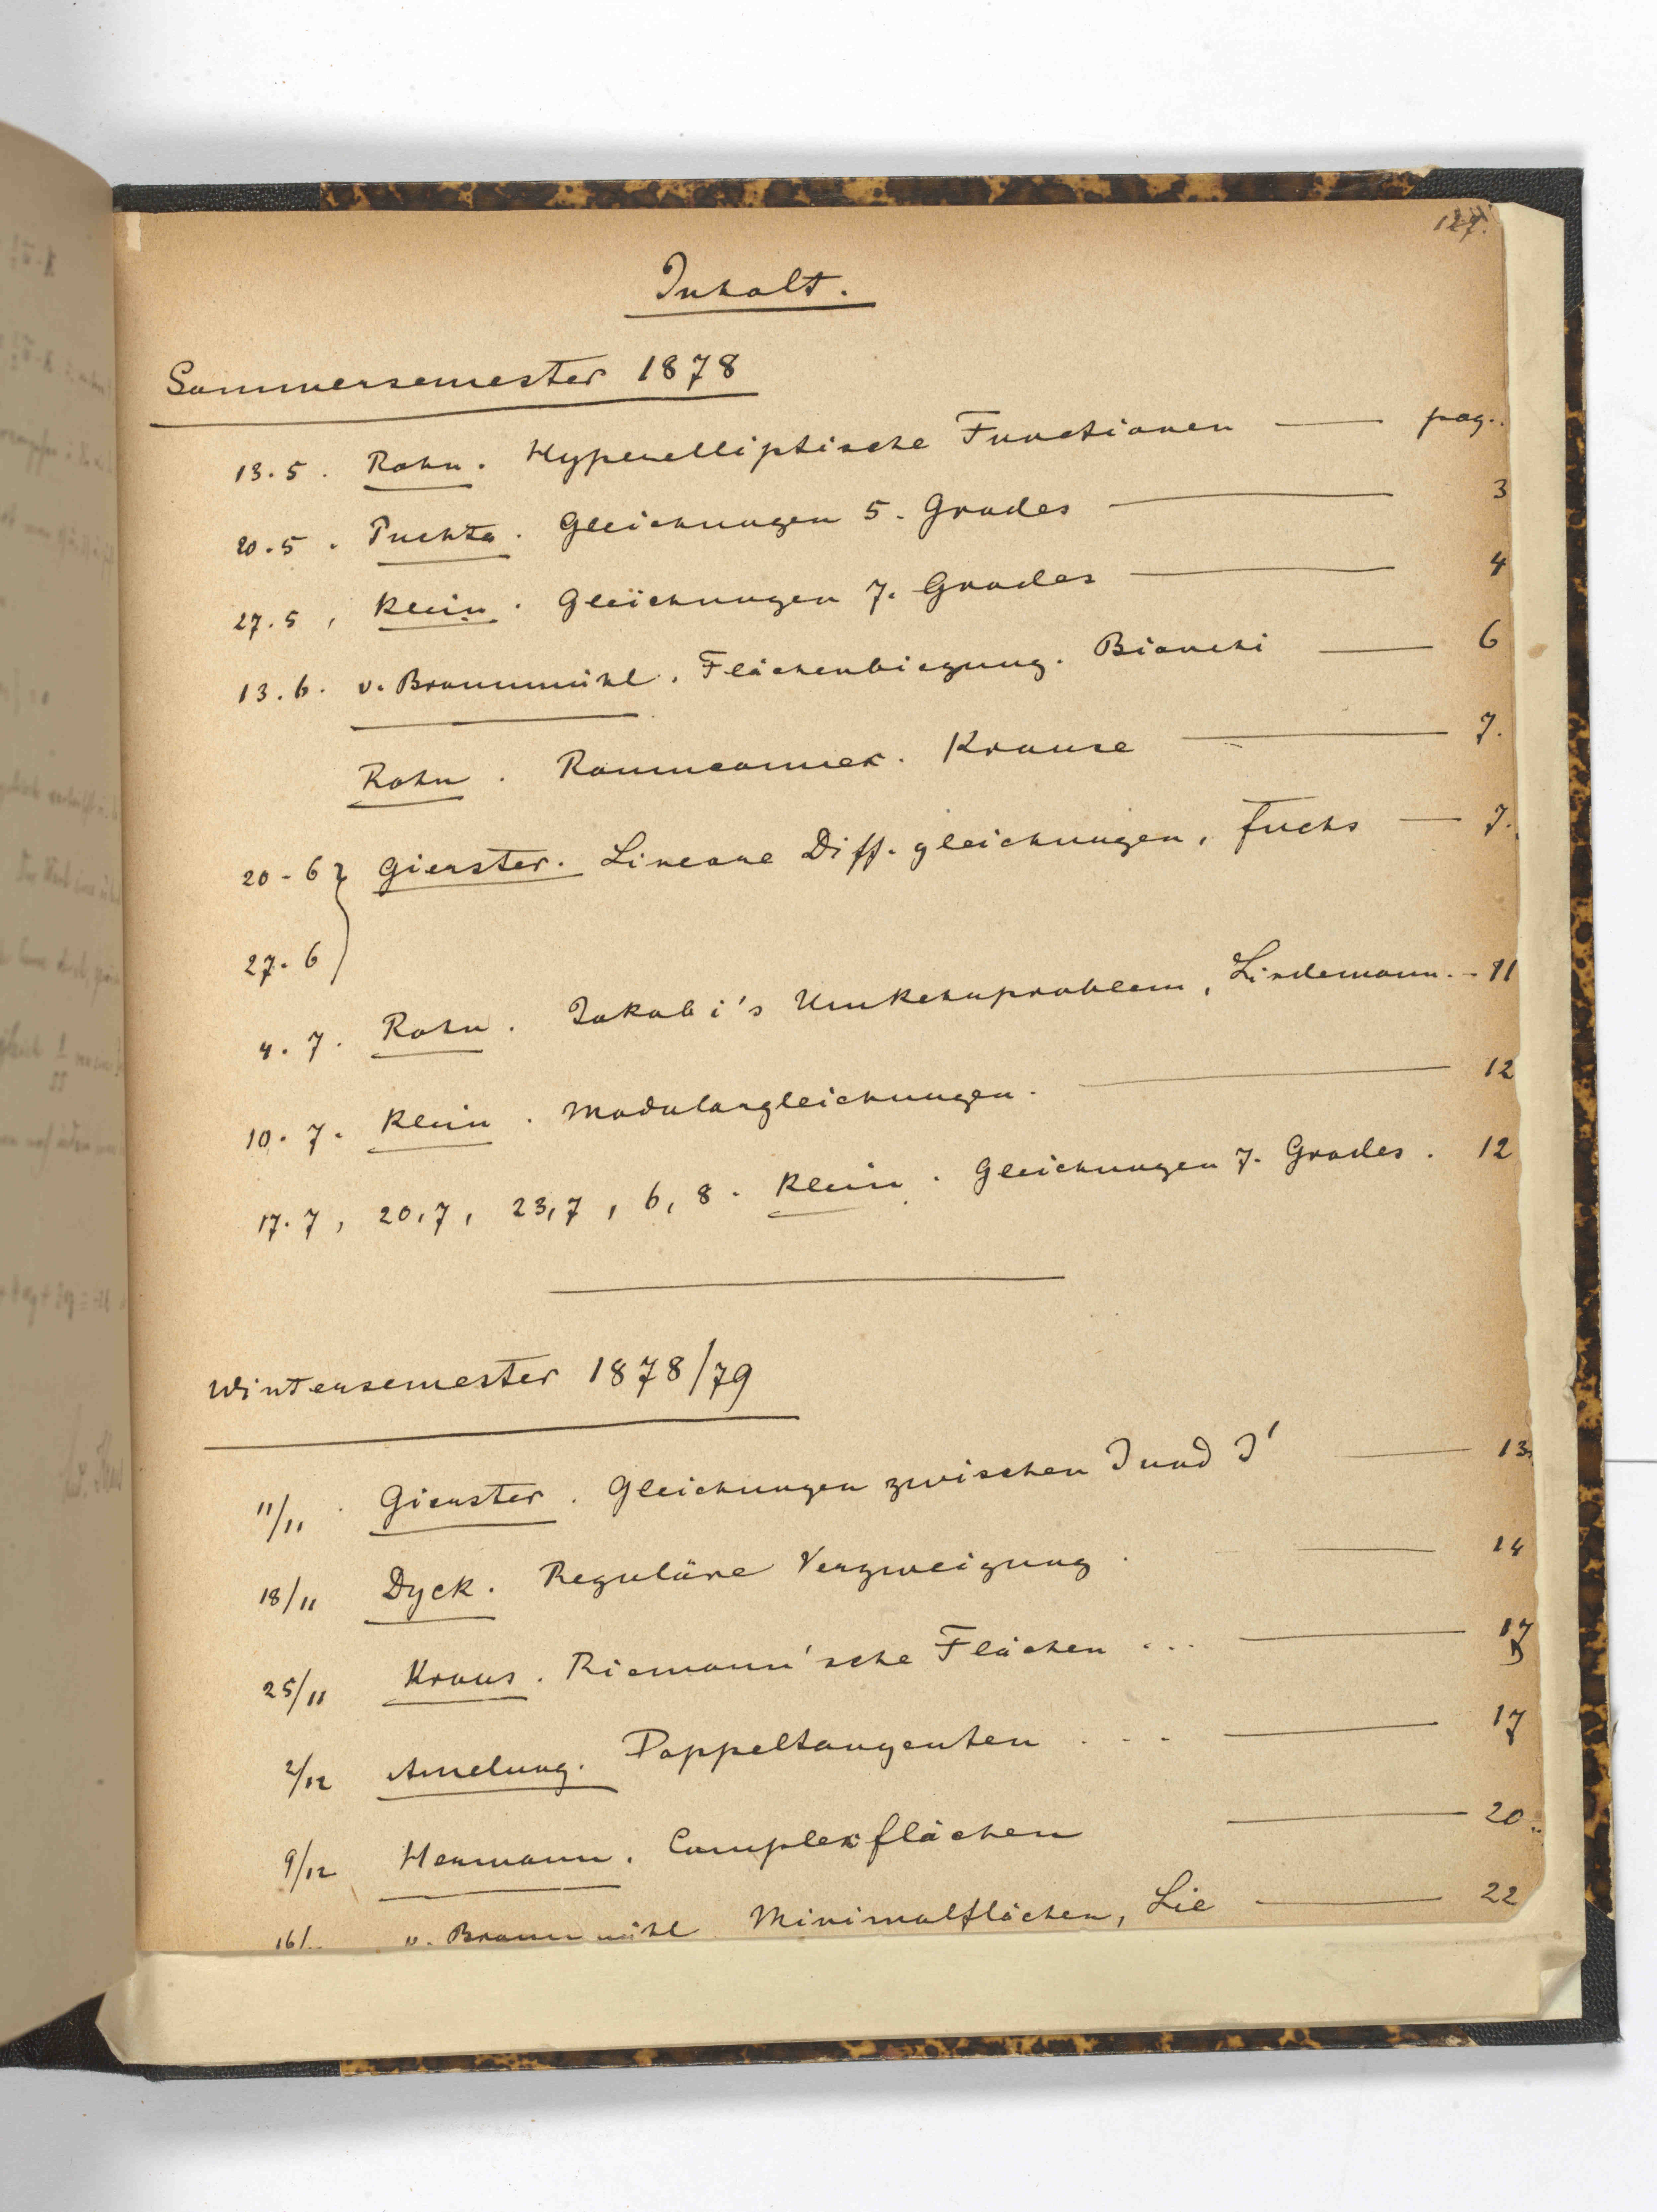 127.
Inhalt.
Sommersemester 1878
13.5. Rohn. Hyperelliptische Functionen — pag.
20.5. Puchta. Gleichungen 5. Grades — 3
27.5, Klein. Gleichungen 7. Grades — 4
13.6. v. Braunmühl. Flächenbiegung. Bianchi — 6
Rohn. Raumcurven. Krause — 7.
20-6 } Gierster. Lineare Diff. gleichungen, Fuchs — 7.
27.6
4.7. Rohn. Jakobi's Umkehrproblem, Lindemann. - 11
10.7. Klein. Modulargleichungen. — 12
17.7, 20,7, 23,7, 6,8. Klein. Gleichungen 7. Grades. 12
Wintersemester 1878/79
11/11. Gierster. Gleichungen zwischen J und J' — 13
18/11 Dyck. Reguläre Verzweigung. — 14
25/11 Kraus. Riemann'sche Flächen ... — 17
2/12 Amelung. Doppeltangenten ... — 17
9/12 Hermann. Complexflächen — 20
16/ v. Braunmühl Minimalflächen, Lie — 22